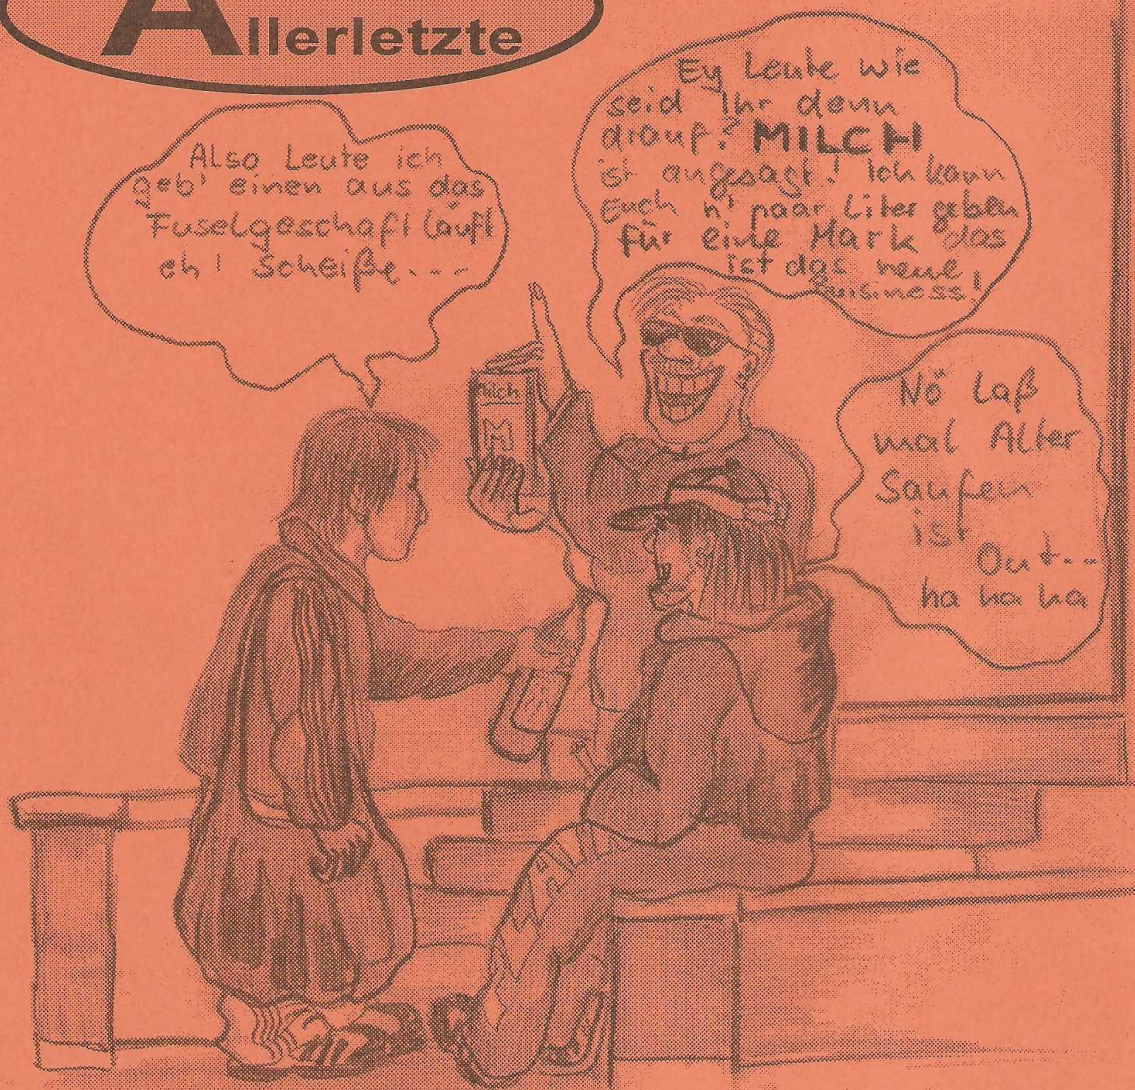 Allerletzte
Also Leute ich
geb' einen aus das
Fuselgeschäft läuft
eh! Scheiße...
Ey Leute wie
seid Ihr denn
drauf? MILCH
ist angesagt! Ich kann
Euch n' paar Liter geben
für eine Mark das
ist das neue
Buisiness!
Milch
M
Nö Laß
mal Alter
Saufen
ist
Out...
ha ha ha